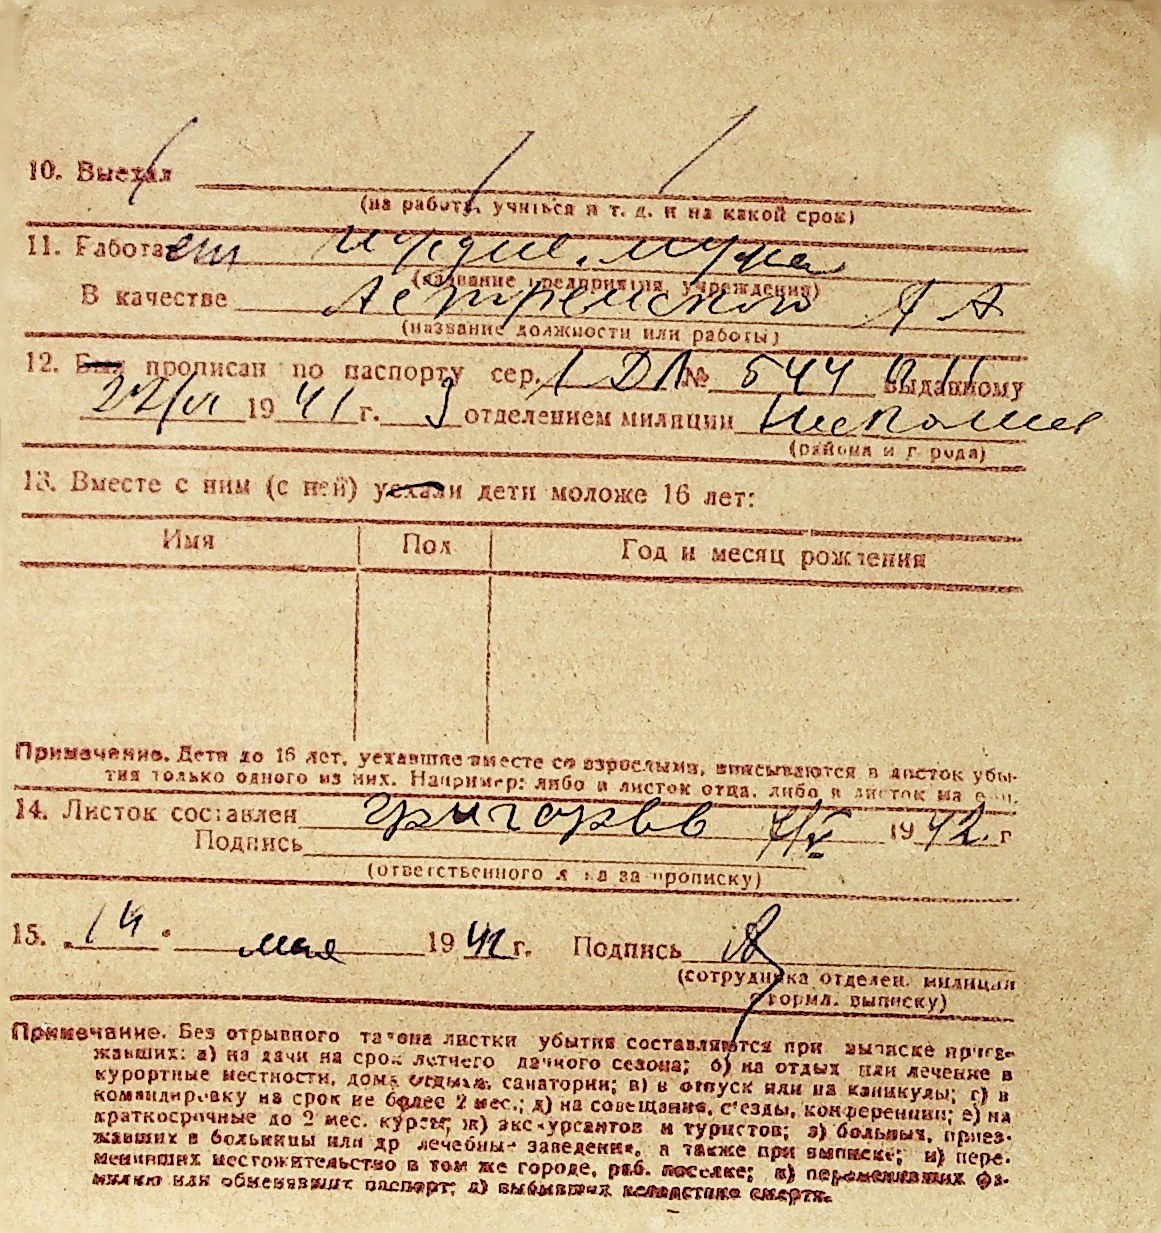 10. Выехал
(на работу, учиться и т. д. и на какой срок)
11. Работает иждив. мужа
(название предприятия, учреждения)
В качестве
(название должности или работы)
12. Был прописан по паспорту сер. № 544 выданному
19 41 г. 3 отделением милиции
(района и города)
13. Вместе с ним (с ней) уехали дети моложе 16 лет:
Имя Пол Год и месяц рождения
Примечание. Дети до 16 лет, уехавшие вместе со взрослыми, вписываются в листок убы-
тия только одного из них. Например: либо в листок отца, либо в листок матери.
14. Листок составлен Григорьев 1942 г
Подпись
(ответственного лица за прописку)
15. 14 мая 1942 г. Подпись
(сотрудника отделен. милиции
оформл. выписку)
Примечание. Без отрывного талона листки убытия составляются при выписке приез-
жавших: а) на дачи на срок летнего дачного сезона; б) на отдых или лечение в
курортные местности, дома отдыха, санатории; в) в отпуск или на каникулы; г) в
командировку на срок не более 2 мес.; д) на совещания, съезды, конференции; е) на
краткосрочные до 2 мес. курсы; ж) экскурсантов и туристов; з) больных, приез-
жавших в больницы или др лечебные заведения, а также при выписке; и) пере-
менивших местожительство в том же городе, раб. поселке; к) переменивших фа-
милию или обменявших паспорт; л) выбывших вследствие смерти.